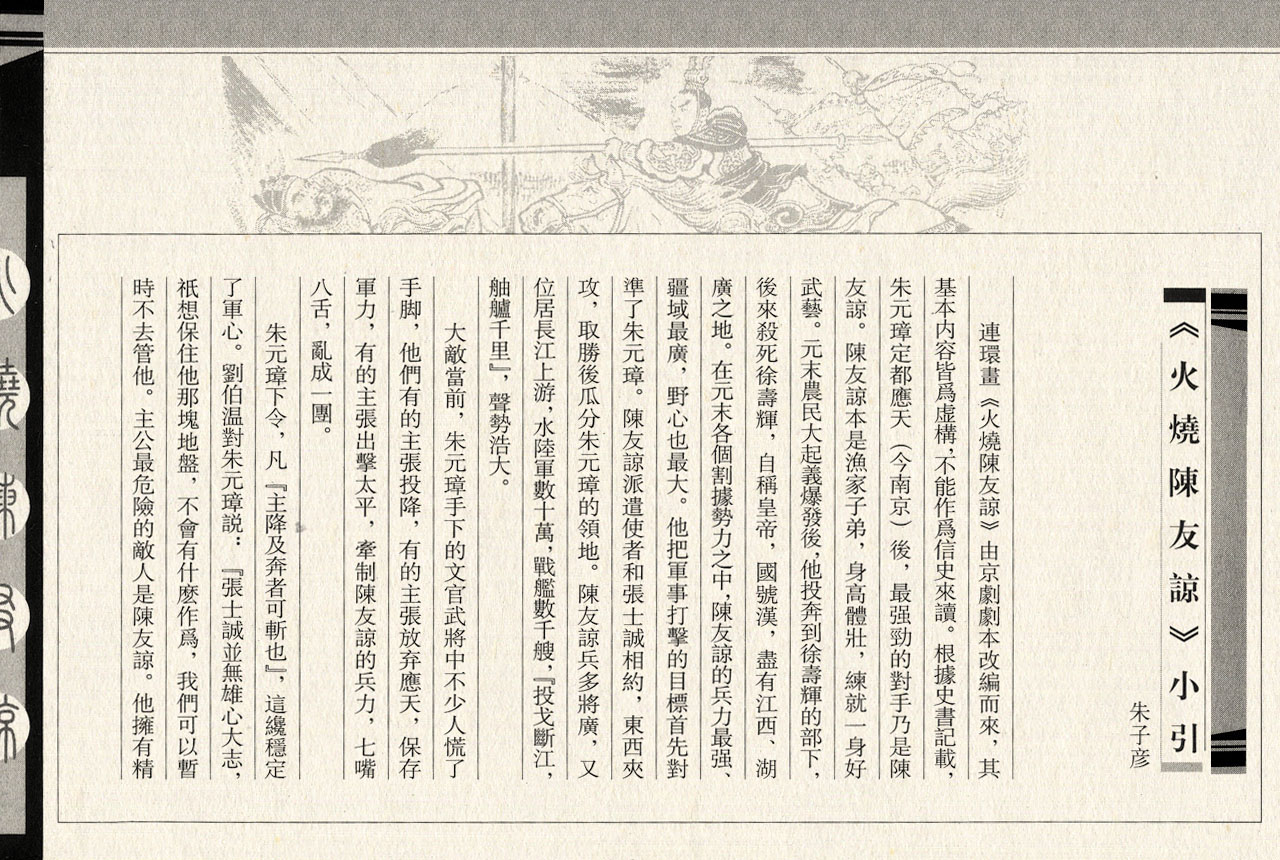 《火燒陳友諒》小引
朱子彦
連環畫《火燒陳友諒》由京劇劇本改編而來，其
基本内容皆爲虚構，不能作爲信史來讀。根據史書記載，
朱元璋定都應天（今南京）後，最强勁的對手乃是陳
友諒。陳友諒本是漁家子弟，身高體壯，練就一身好
武藝。元末農民大起義爆發後，他投奔到徐壽輝的部下，
後來殺死徐壽輝，自稱皇帝，國號漢，盡有江西、湖
廣之地。在元末各個割據勢力之中，陳友諒的兵力最强、
疆域最廣，野心也最大。他把軍事打擊的目標首先對
準了朱元璋。陳友諒派遣使者和張士誠相約，東西夾
攻，取勝後瓜分朱元璋的領地。陳友諒兵多將廣，又
位居長江上游，水陸軍數十萬，戰艦數千艘，『投戈斷江，
舳艫千里』，聲勢浩大。
大敵當前，朱元璋手下的文官武將中不少人慌了
手脚，他們有的主張投降，有的主張放弃應天，保存
軍力，有的主張出擊太平，牽制陳友諒的兵力，七嘴
八舌，亂成一團。
朱元璋下令，凡『主降及奔者可斬也』，這纔穩定
了軍心。劉伯温對朱元璋説：『張士誠並無雄心大志，
祇想保住他那塊地盤，不會有什麽作爲，我們可以暫
時不去管他。主公最危險的敵人是陳友諒。他擁有精
火燒陳友諒